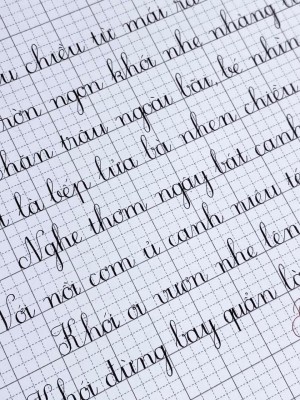 chiều từ mái rạ
ngọn khói nhẹ nhàng
trâu ngoài bãi, bé nhìn
là bếp lửa bà nhen chiều
Nghe thơm ngậy bát canh
Với nồi cơm ủ canh niêu
Khói ơi vươn nhẹ lên
Khói đừng bay quẩn